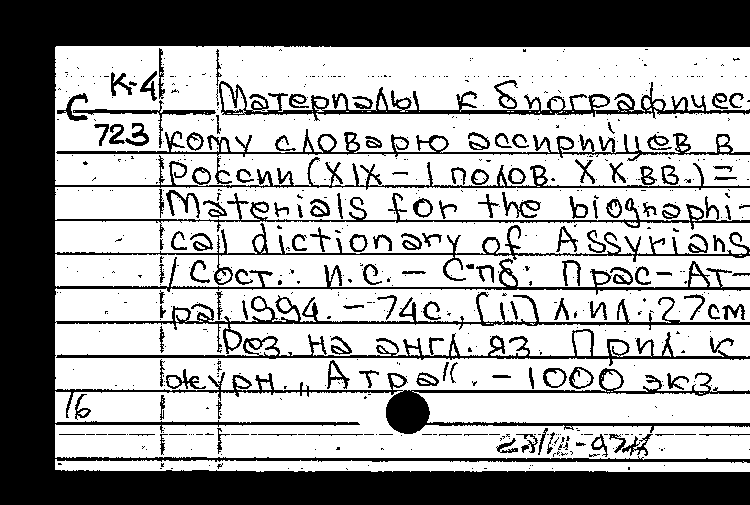 К-4
С
723
Материалы к биографичес-
кому словарю ассирийцев в
России (XIX - I полов. XX вв.) =
Materials for the biographi-
cal dictionary of Assyrians
/ Сост.: И.С. - Спб: Прас-Ат-
ра, 1994. - 74с., [11] л. ил.; 27см
Рез. на англ. яз. Прил. к
журн. „Атра". - 1000 экз.
16